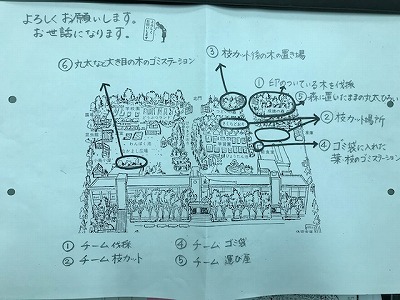 よろしくお願いします。
お世話になります。
③ 枝カット後の木の置き場
⑥ 丸太など大き目の木のゴミステーション
① 印のついている木を伐採
⑤ 森に置いたままの丸太ひろい
② 枝カット場所
④ ゴミ袋に入れた
葉 枝のゴミステーション
① チーム 伐採
② チーム 枝カット
④ チーム ゴミ袋
⑤ チーム 運び屋